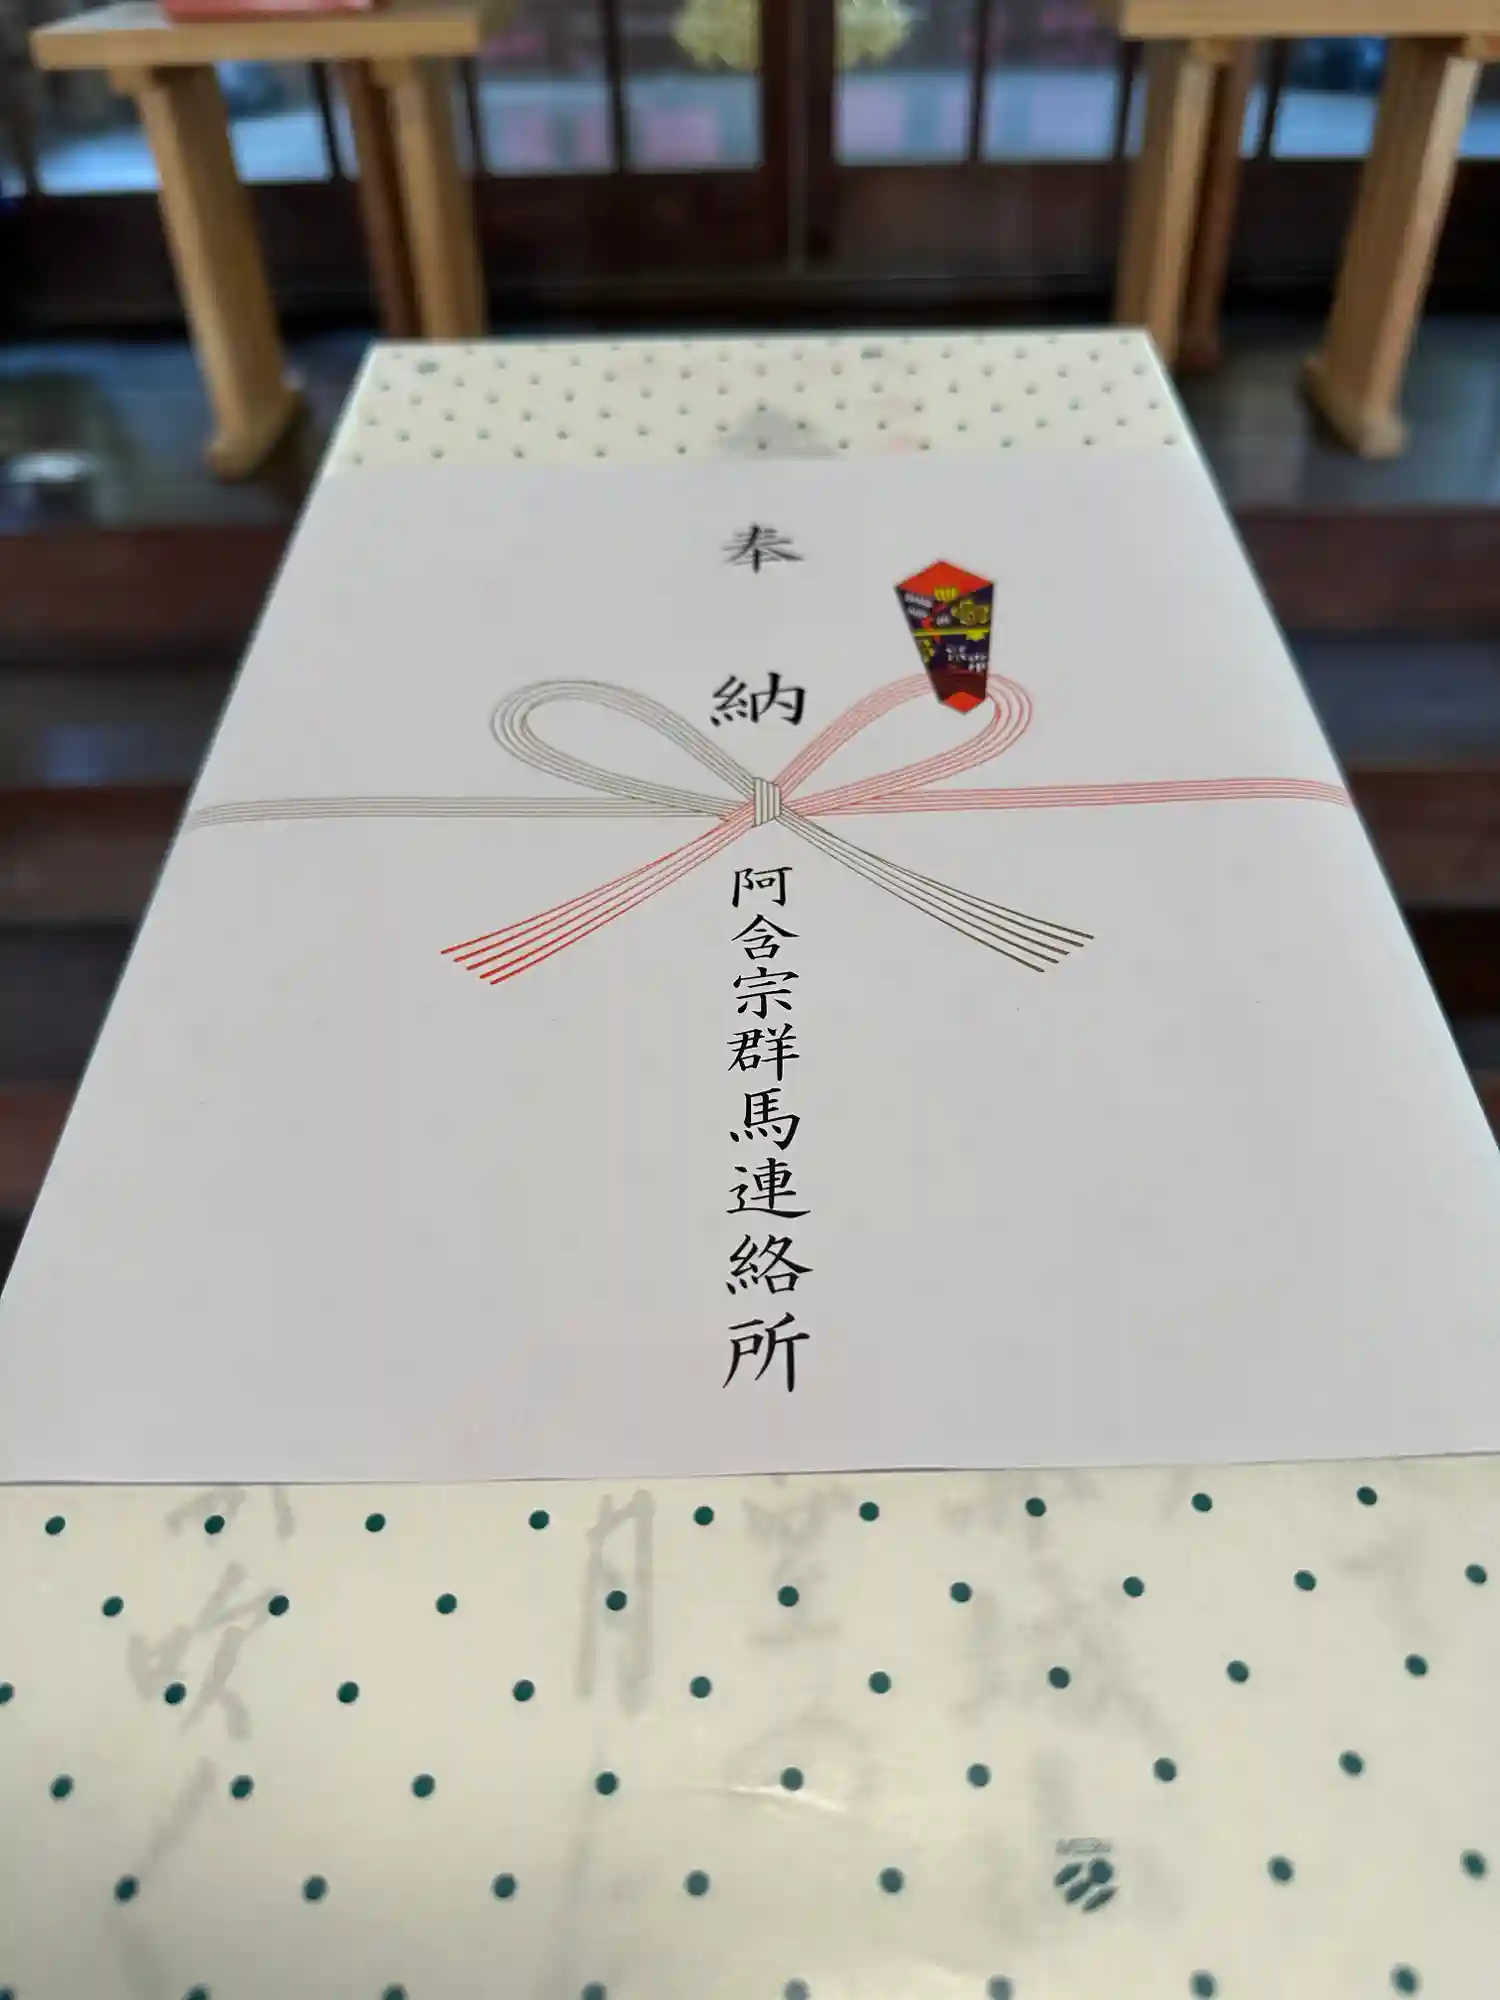 奉納
阿含宗群馬連絡所